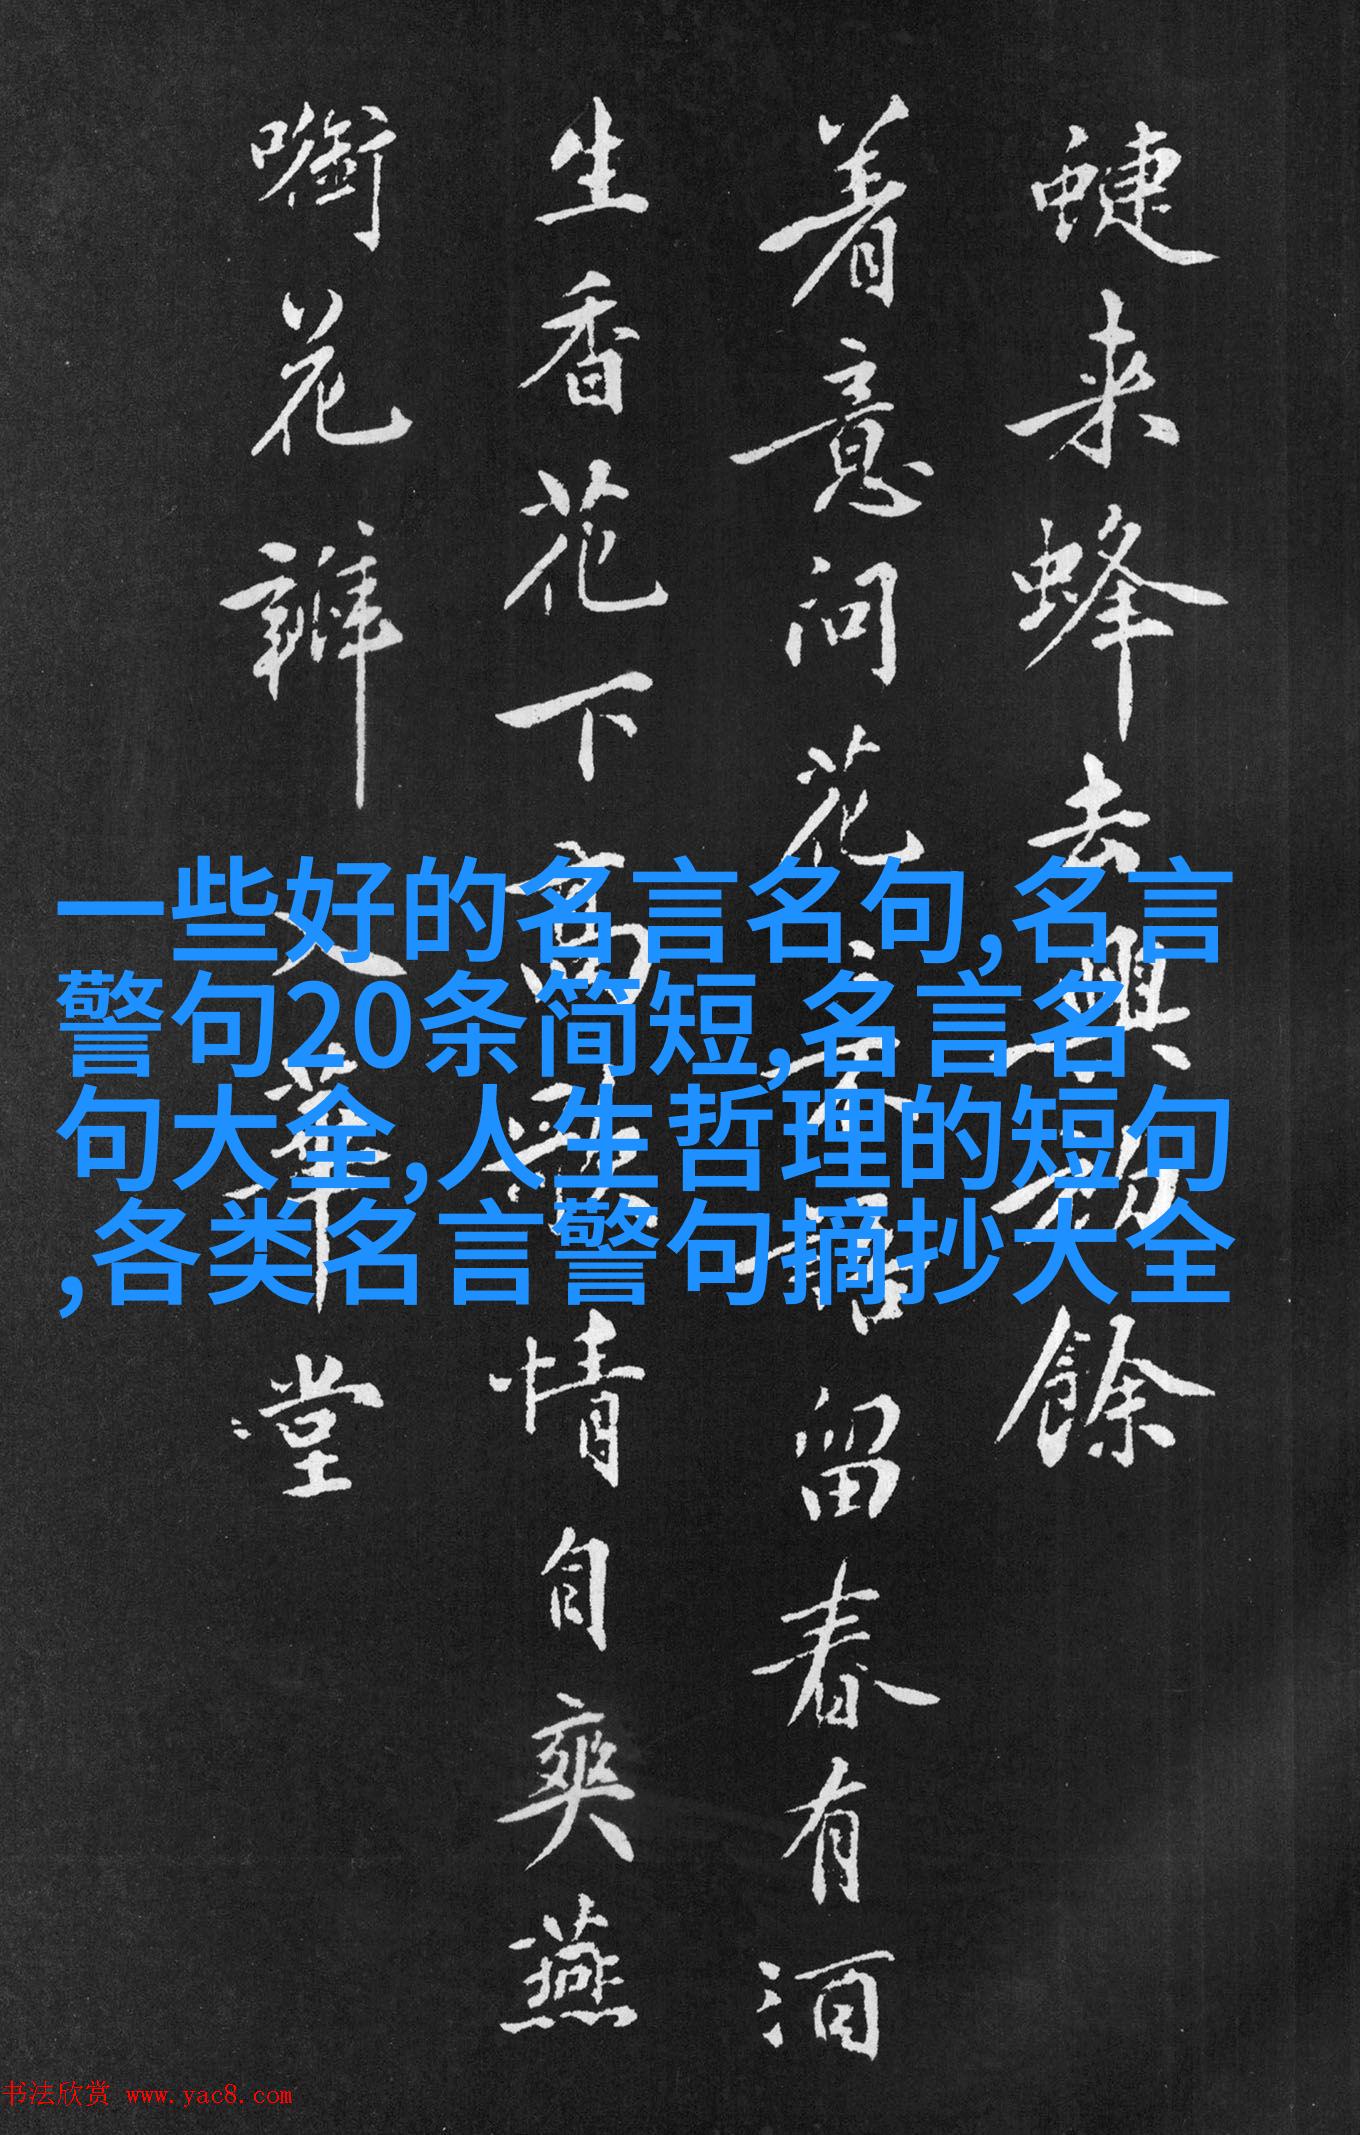 蜨来蜂去興
餘
着意问花
留春有酒
生香花下高
情自爽燕
㘅花瓣
堂
一些好的名言名句,名言
警句20条简短,名言名
句大全,人生哲理的短句
,各类名言警句摘抄大全
书法欣赏 www.yac8.com